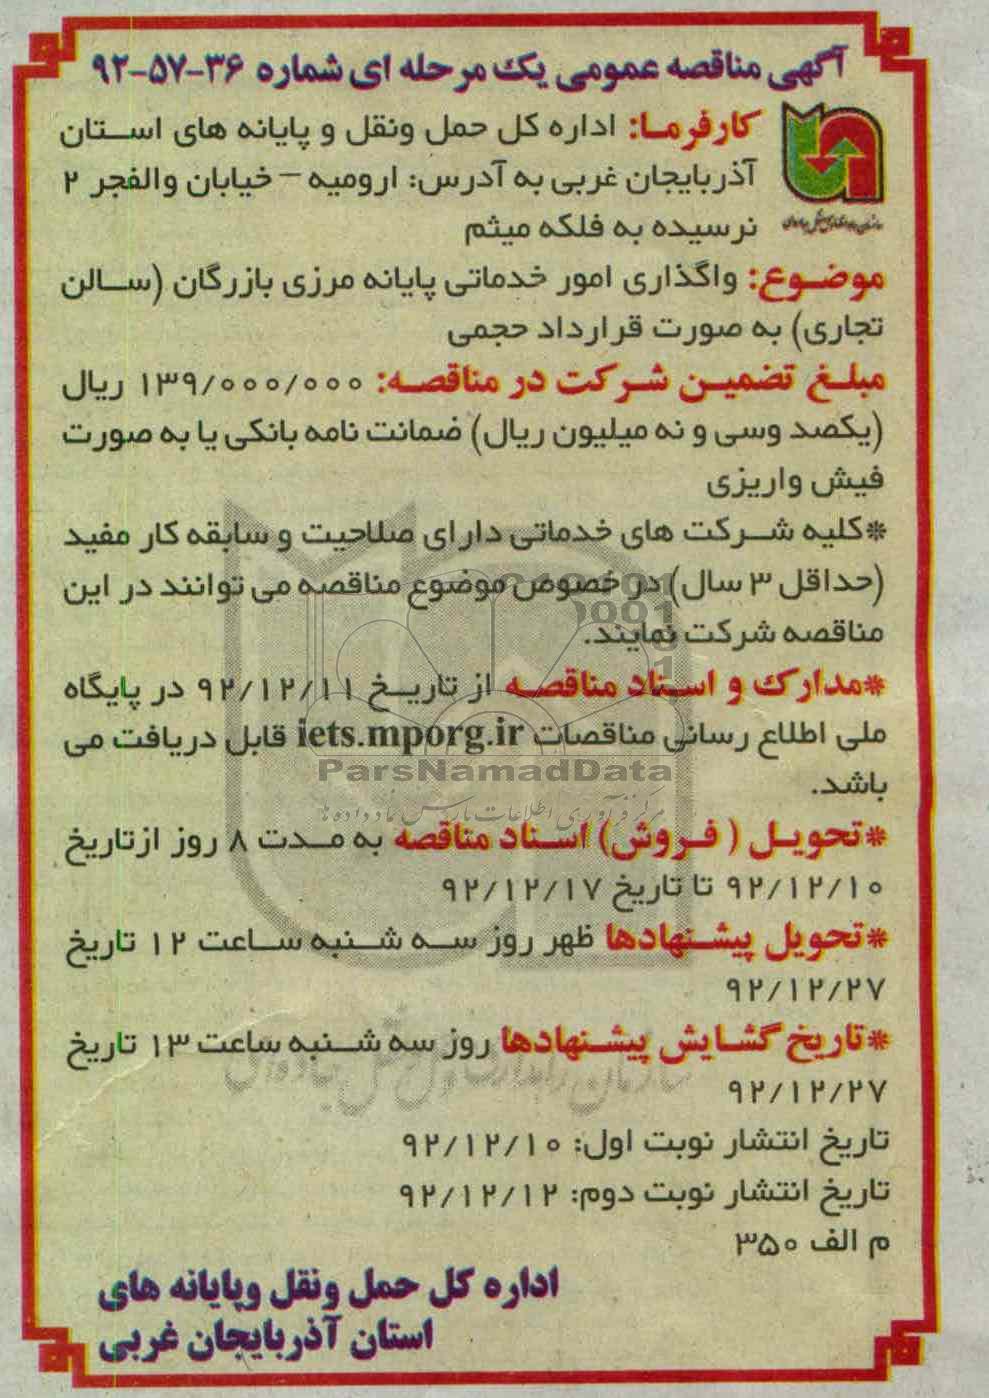 آگهی مناقصه عمومی یک مرحله ای شماره ۳۶-۵۷-۹۲
کارفرما: اداره کل حمل ونقل و پایانه های استان
آذربایجان غربی به آدرس: ارومیه – خیابان والفجر ۲
نرسیده به فلکه میثم
موضوع: واگذاری امور خدماتی پایانه مرزی بازرگان (سالن
تجاری) به صورت قرارداد حجمی
مبلغ تضمین شرکت در مناقصه: ۱۳۹/۰۰۰/۰۰۰ ریال
(یکصد وسی و نه میلیون ریال) ضمانت نامه بانکی یا به صورت
فیش واریزی
*کلیه شرکت های خدماتی دارای صلاحیت و سابقه کار مفید
(حداقل ۳ سال) در خصوص موضوع مناقصه می توانند در این
مناقصه شرکت نمایند.
*مدارک و اسناد مناقصه از تاریخ ۹۲/۱۲/۱۱ در پایگاه
ملی اطلاع رسانی مناقصات iets.mporg.ir قابل دریافت می
باشد.
ParsNamadData
مرکز فرآوری اطلاعات پارس نماد داده ها
*تحویل (فروش) اسناد مناقصه به مدت ۸ روز ازتاریخ
۹۲/۱۲/۱۰ تا تاریخ ۹۲/۱۲/۱۷
*تحویل پیشنهادها ظهر روز سه شنبه ساعت ۱۲ تاریخ
۹۲/۱۲/۲۷
*تاریخ گشایش پیشنهادها روز سه شنبه ساعت ۱۳ تاریخ
۹۲/۱۲/۲۷
تاریخ انتشار نوبت اول: ۹۲/۱۲/۱۰
تاریخ انتشار نوبت دوم: ۹۲/۱۲/۱۲
م الف ۳۵۰
اداره کل حمل ونقل وپایانه های
استان آذربایجان غربی